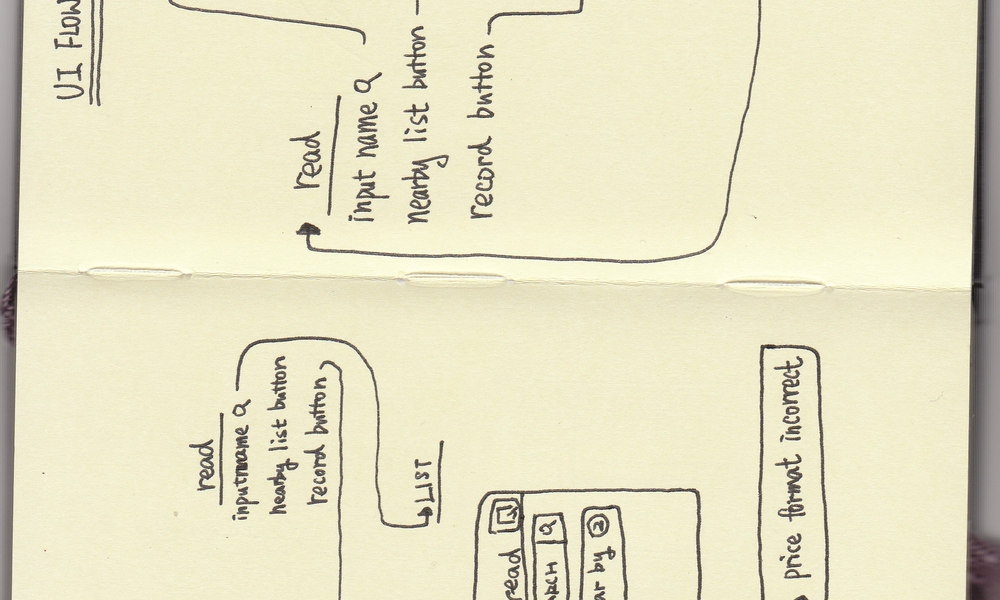 UI FLOW
read
input name Q
nearby list button
record button
read
input name Q
nearby list button
record button
LIST
read
price format incorrect